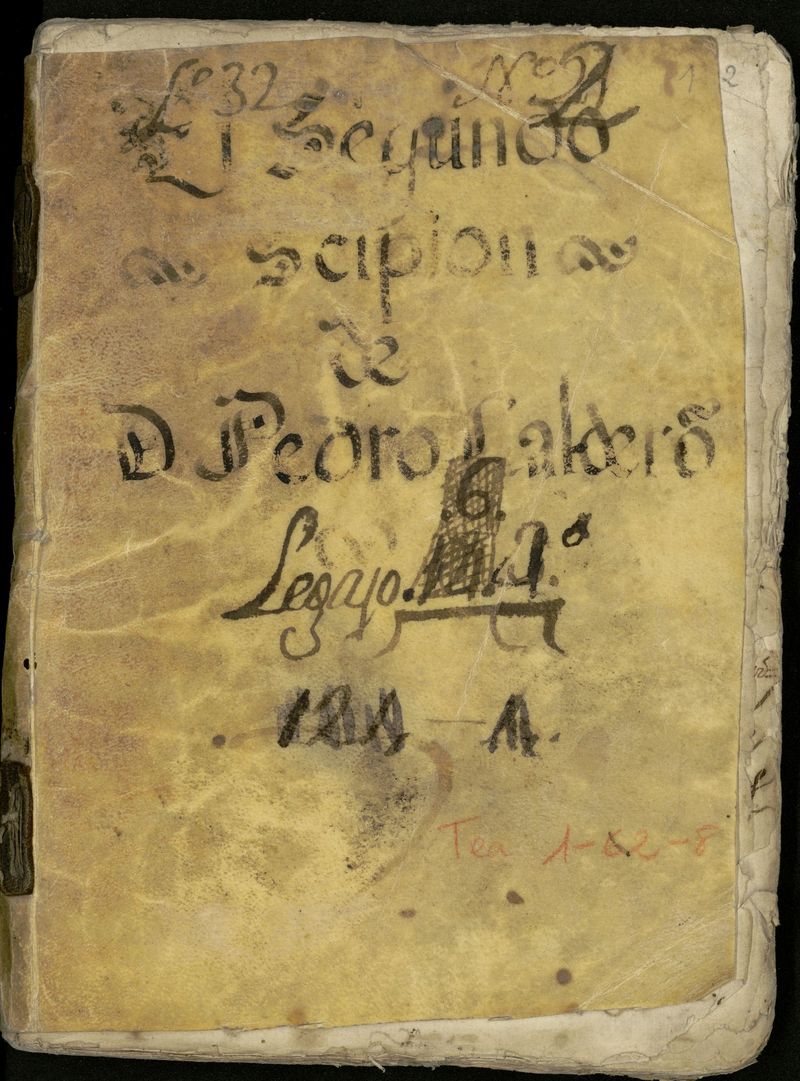 Lº 32 Nº 2
1 2
El Segundo
Scipion
de
D Pedro Calderō
.6.
Legajo
Tea 1-62-8